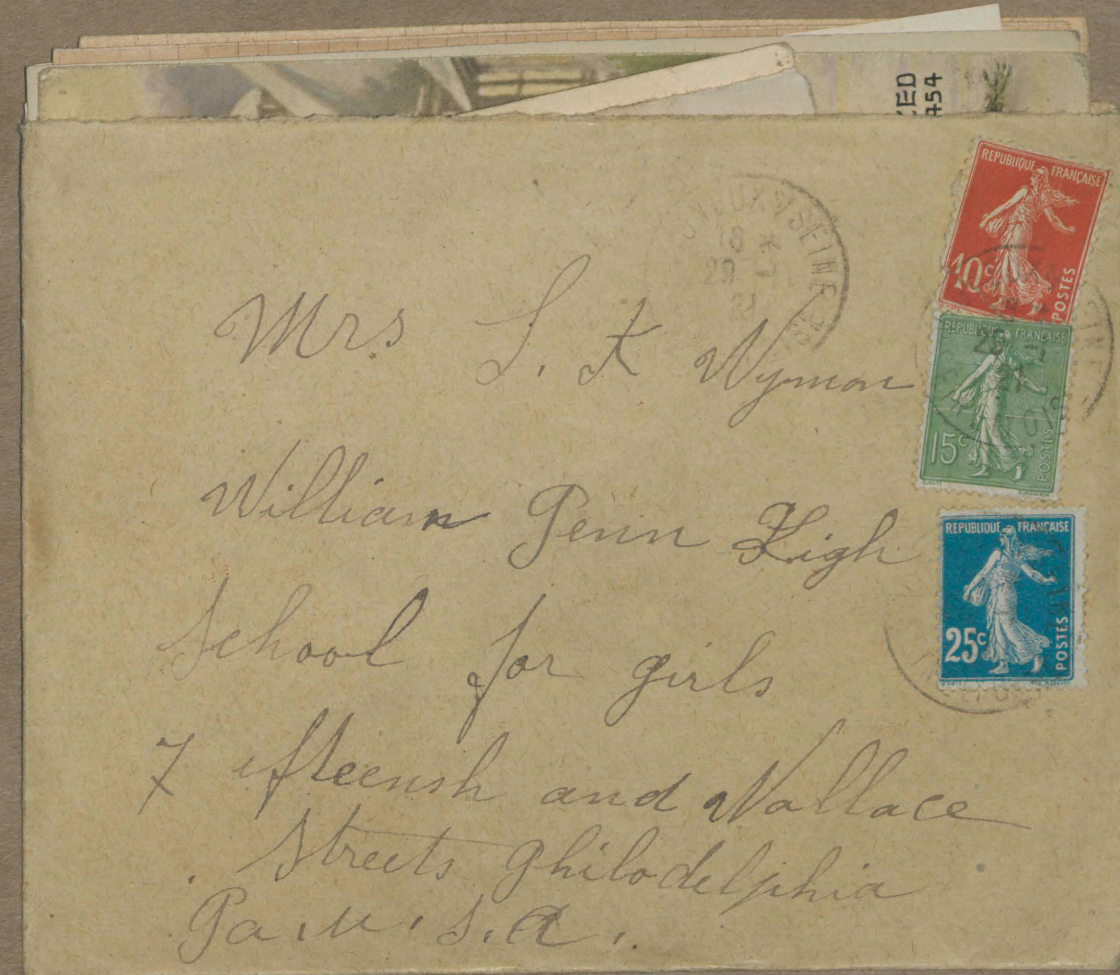 ED
454
SEINE
18
29
21
REPUBLIQUE FRANÇAISE
10c
POSTES
REPUBLIQUE FRANÇAISE
15c
POSTES
REPUBLIQUE FRANÇAISE
25c
POSTES
Mrs S. K Wyman
William Penn High
School for girls
Fifteensh and Wallace
Streets Philodelphia
Pa. U. S. A.